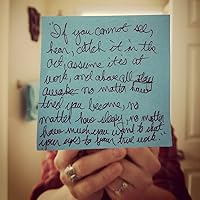 "If you cannot see,
hear, catch it in the
act, assume its at
work, and above all stay
awake no matter how
tired you become, no
matter how sleepy, no matter
how much you want to shut
your eyes to your true work.